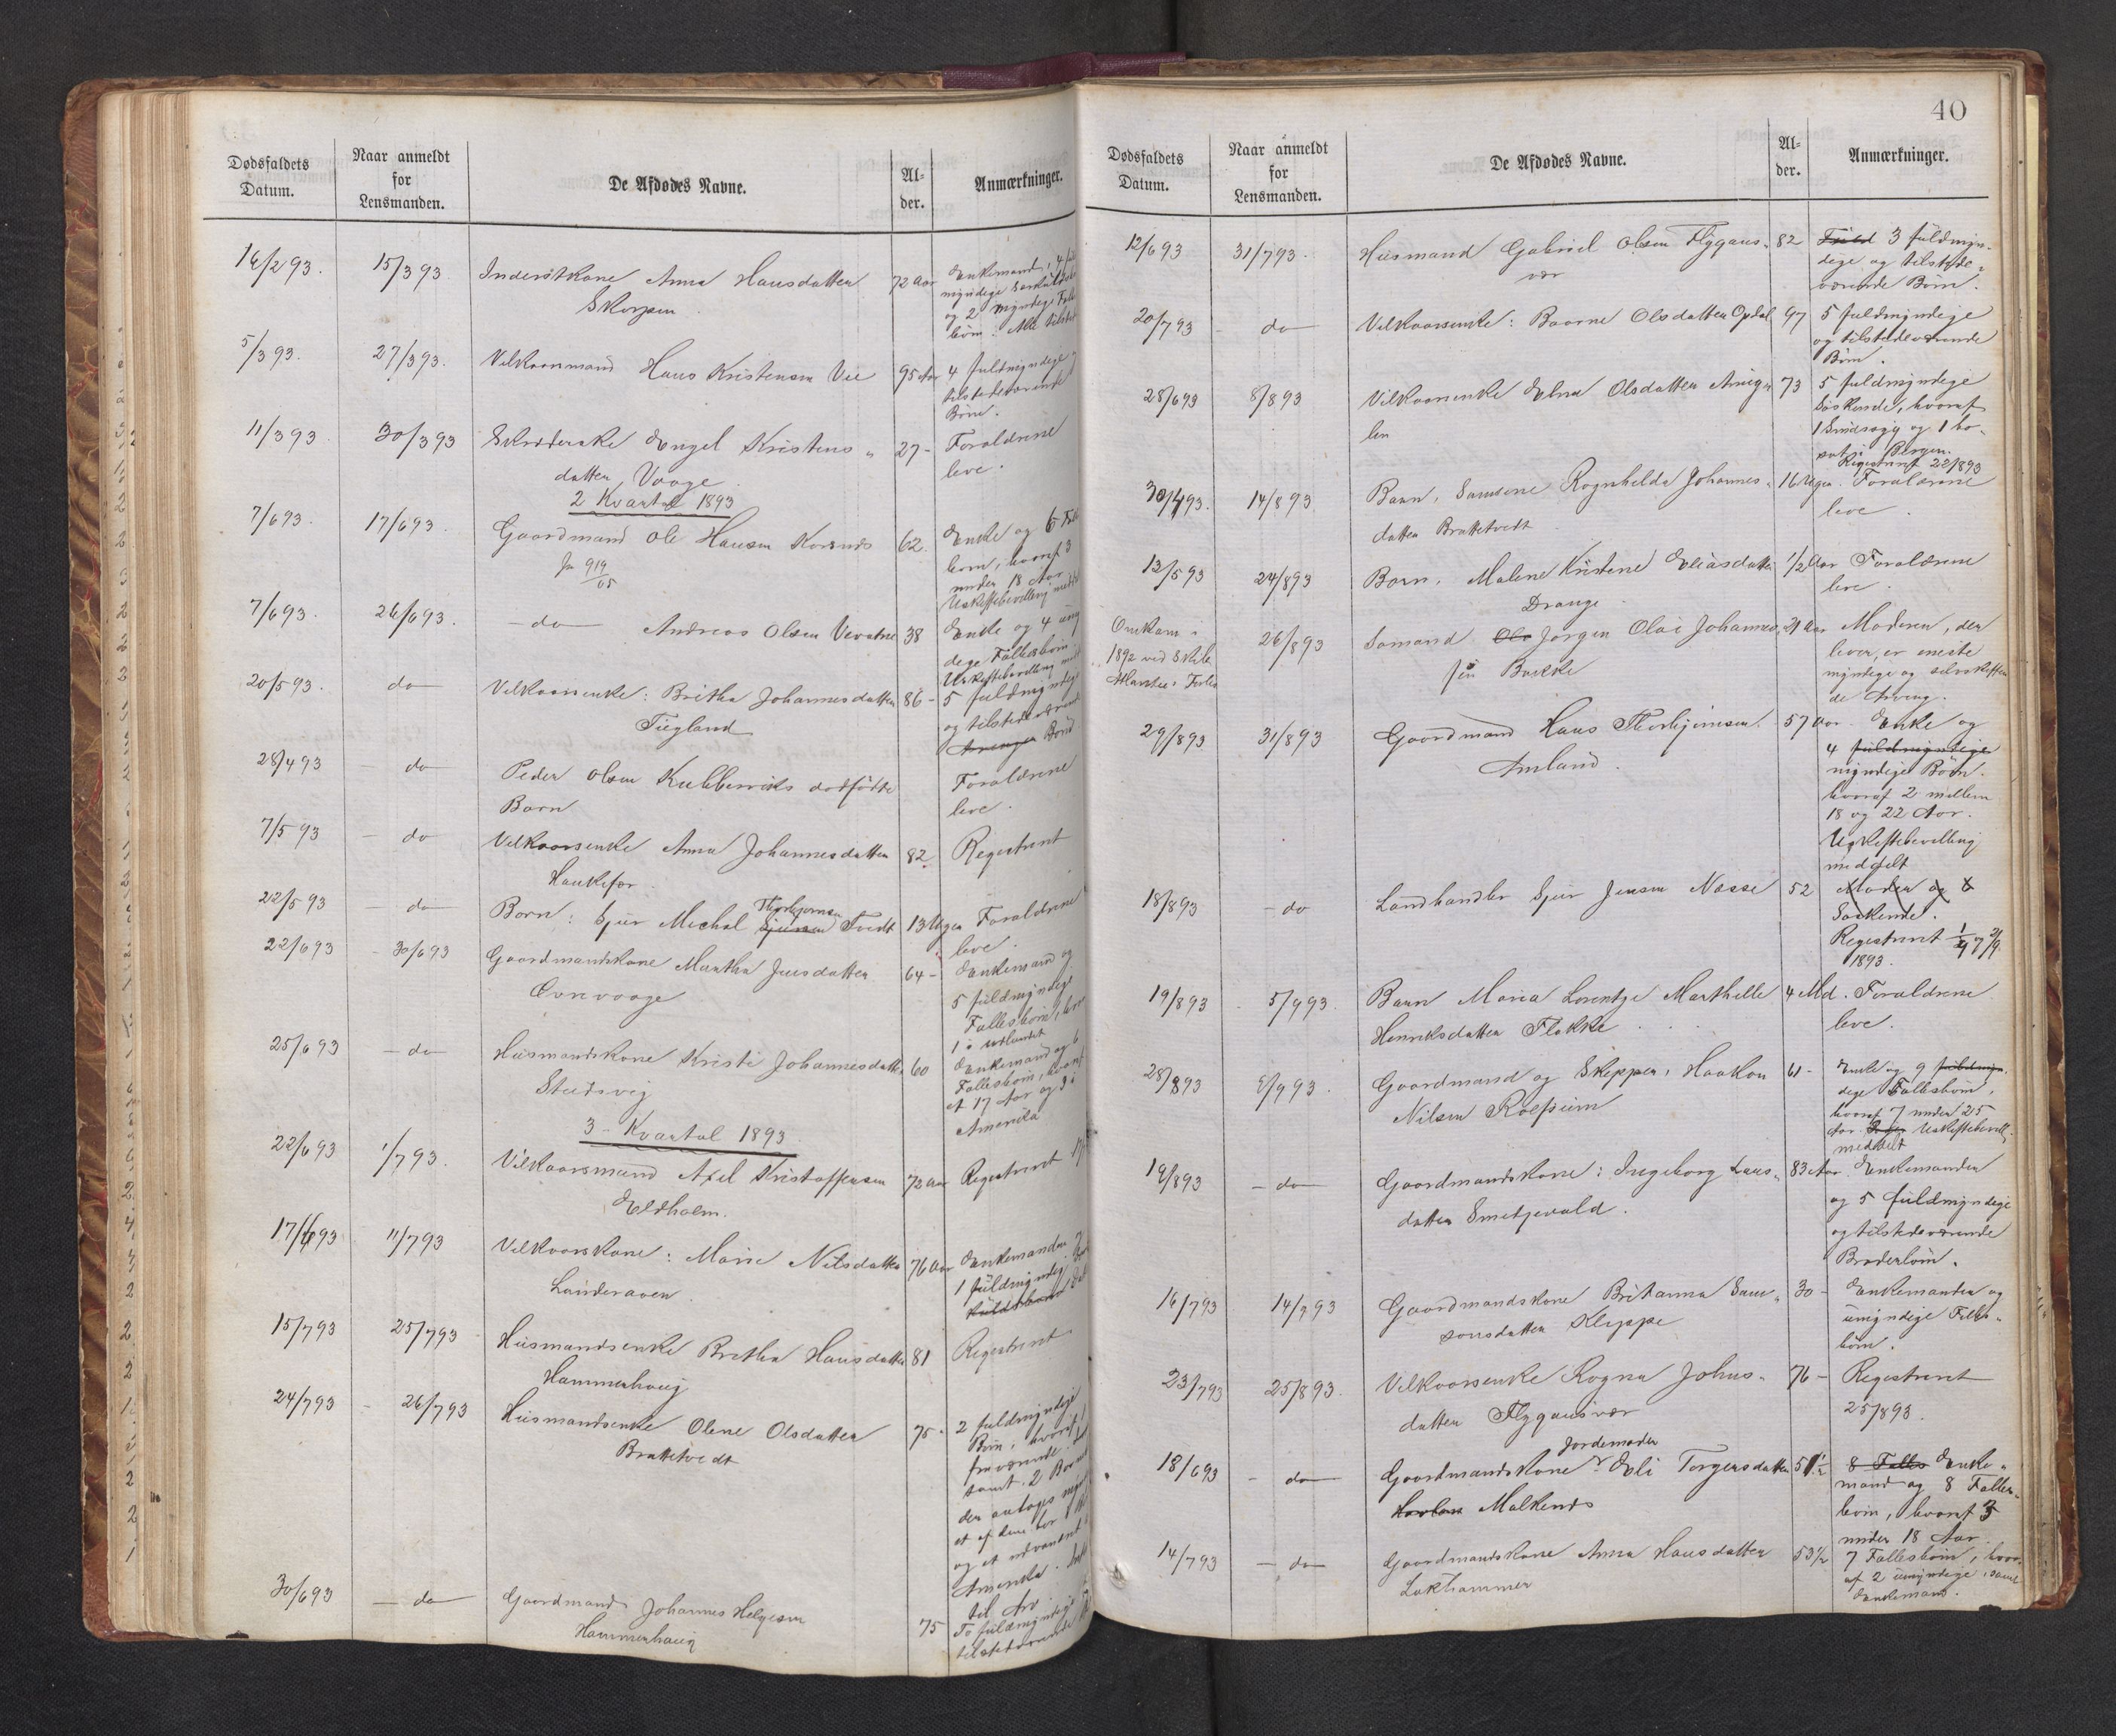 Dødsfaldets
Datum.
Naar anmeldt
for
Lensmanden.
De Afdødes Navne.
Al-
der.
Anmærkninger.
16/2 93. 15/3 93. Inderstkone Anna Hansdatter 72 Aar Enkemand, 4
Skorpen
myndige Særkuldbørn
og 2 myndige Fælles
børn. Alle tilsted
5/3 93. 27/3 93. Vilkaarsmand Hans Kristensen Vie 95 Aar 4 fuldmyndige
tilstedeværende
Børn.
11/3 93. 30/3 93 Engel Kristens- 27- Forældrene
datter Vaage
leve.
2 Kvartal 1893
7/6 93. 17/6 93. Gaardmand Ole Hansen Korsnes 62. Enke og 6 Fælles
Jr 919/05
børn, hvoraf 3
under 18 Aar
Uskiftebevilling meddelt
7/6 93. 26/6 93. do Andreas Olsen 38 Enke og 4 umyn
dige Fællesbørn
Uskiftebevilling
20/5 93. do Vilkaarsenke: Britha Johannesdatter 86- 5 fuldmyndige
Tiegland
og tilstedeværende
Arvinger Børn
28/4 93 do Peder Olsen Kubbervicks dødfødte Forældrene
Barn
leve.
7/5 93 do Vilkaarsenke Anna Johannesdatter 82. Registreret
Haukefær
22/5 93 do Barn: Sjur Michal Thorbjørnsen Tvedt 13 Uger Forældrene
leve.
22/6 93 30/6 93 Gaardmandskone Martha Jensdatter 64- Enkemand og
Ovnvaage
5 fuldmyndige
Fællesbørn,
1 i Udlandet
25/6 93 do Husmandskone Kristi Johannesdatter 60 Enkemand og 6
Stutsvig
Fællesbørn, hvoraf
et 17 Aar og 3 i
Amerika
3- Kvartal 1893
22/6 93 1/7 93. Vilkaarsmand Axel Kristoffersen 72 Aar Registreret
Eldholm.
17/6 93 11/7 93 Vilkaarskone: Marie Nilsdatter 76 Aar Enkemanden
Landeraaen
1 fuldmyndig
15/7 93 25/7 93 Husmandsenke Britha Hansdatter 81 Registreret
Hammerhaug
24/7 93 26/7 93 Husmandsenke Olene Olsdatter 75. 2 fuldmyndige
Brattetvedt
Børn, hvoraf 1
fraværende
samt 2 Børnebørn
der antages
og et udvandret
Amerika.
til Arv.
30/6 93 do Gaardmand Johannes Helgesen 75 To fuldmyndige
Hammerhaug
tilstedeværende
40
Dødsfaldets
Datum.
Naar anmeldt
for
Lensmanden.
De Afdødes Navne.
Al-
der.
Anmærkninger.
12/6 93 31/7 93. Husmand Gabriel Olsen Flygans- 82 Fuld 3 fuldmyn-
vær
dige og tilstede-
værende Børn.
20/7 93 do Vilkaarsenke: Baarne Olsdatter Opdal 97 5 fuldmyndige
og tilstedeværende
Børn.
28/6 93 8/8 93 Vilkaarsenke Elna Olsdatter 73 5 fuldmyndige
Søskende, hvoraf
1 Sindssyg og 1 bo-
sat i Bergen.
Registreret 22/8 93
30/4 93. 14/8 93 Barn, Samsine Ragnhelda Johannes- 16 Uger. Forældrene
datter Brattetvedt
leve.
12/5 93 24/8 93 Barn. Malene Kristene Eliasdatter 1/2 Aar Forældrene
Drange
leve.
Omkom i
1892 ved Skibe
26/8 93 Sømand Ole Jørgen Olai Johannes 21 Aar Moderen, der
sen Bakke
lever, er eneste
myndige og selvskiften
de Arving.
29/8 93 31/8 93 Gaardmand Hans Thorbjørnsen 57 Aar Enke og
Amland.
4 fuldmyndige
myndige Børn.
hvoraf 2 mellem
18 og 22 Aar.
Uskiftebevilling
meddelt
18/8 93 do Landhandler Sjur Jensen Næsse 52 Moder og 6
Søskende.
Registreret
1893.
19/8 93 5/9 93. Barn Maria Lorentze Marthelle 4 Md. Forældrene
Henriksdatter Flokke
leve.
28/8 93 9/9 93. Gaardmand og Skipper, Haakon 61- Enke og 9 fuldmyn
Nilsen Rolfsum
dige Fællesbørn,
hvoraf 7 under 25
Aar. Uskiftebevill.
meddelt
19/8 93 do Gaardmandskone: Ingeborg Lars- 83 Aar Enkemanden
datter Smetjevold.
og 5 fuldmyndige
og tilstedeværende
Broderbørn.
16/7 93 14/7 93 Gaardmandskone Britanna Sam- 30- Enkemanden og
sonsdatter Kleppe
umyndige Fælles-
børn.
23/7 93 25/8 93. Vilkaarsenke Ragna Johns- 76- Registreret
datter Flygansvær
25/8 93.
Jordemoder
18/6 93 do Gaardmandskone Eli Torgersdatter 51 1/2 8 Fælles Enke-
Malkenes
mand og 8 Fælles-
børn, hvoraf 3
under 18 Aar.
14/7 93 do Gaardmandskone Anna Hansdatter 53 1/2 7 Fællesbørn, hvor-
Lokhammer
af 2 umyndige, samt
Enkemand.